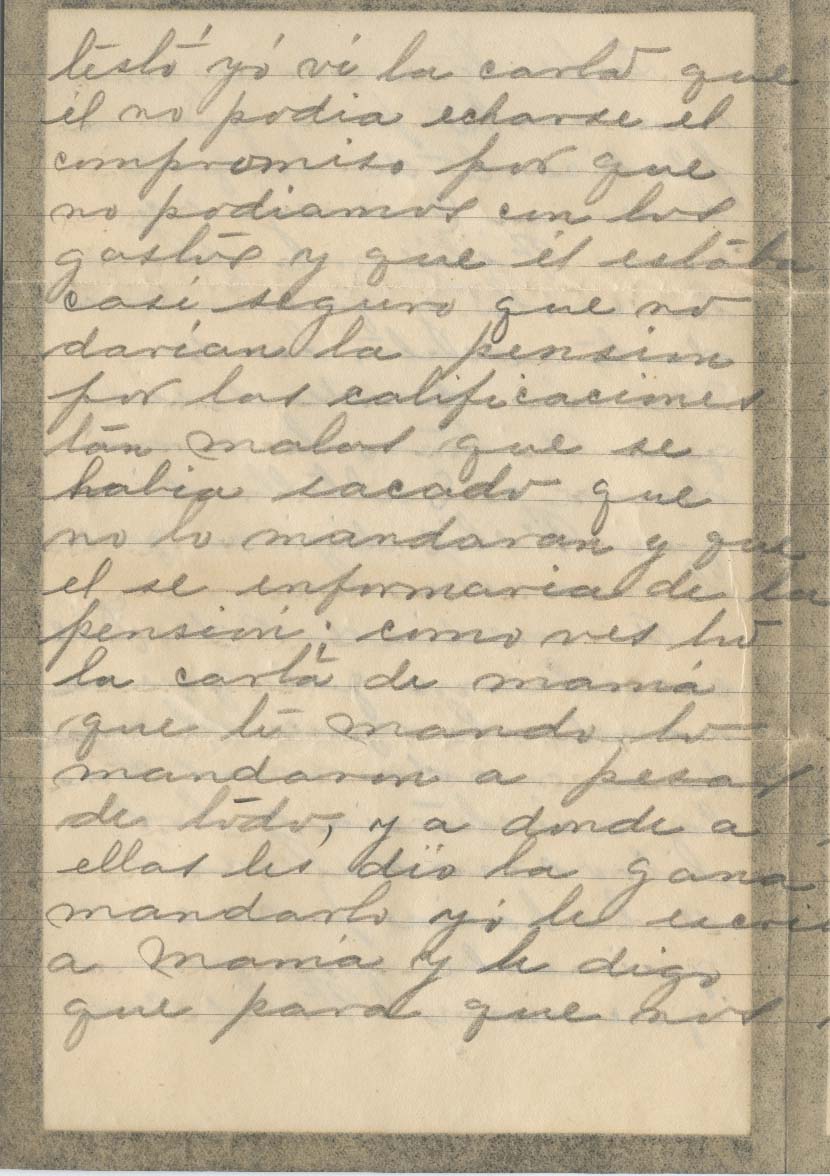 testó yó vi la carta que
él no podia echarse el
compromiso por que
no podiamos con los
gastos y que él estaba
casi seguro que no
darían la pension
por las calificaciones
tan malas que se
habia sacado que
no lo mandaran y que
el se informaria de la
pensión; como ves tu
la carta de mamá
que te mando lo
mandaron a pesar
de todo, y a donde a
ellas les dio la gana
mandarlo yó le escri
a mamá y le digo
que para que nos